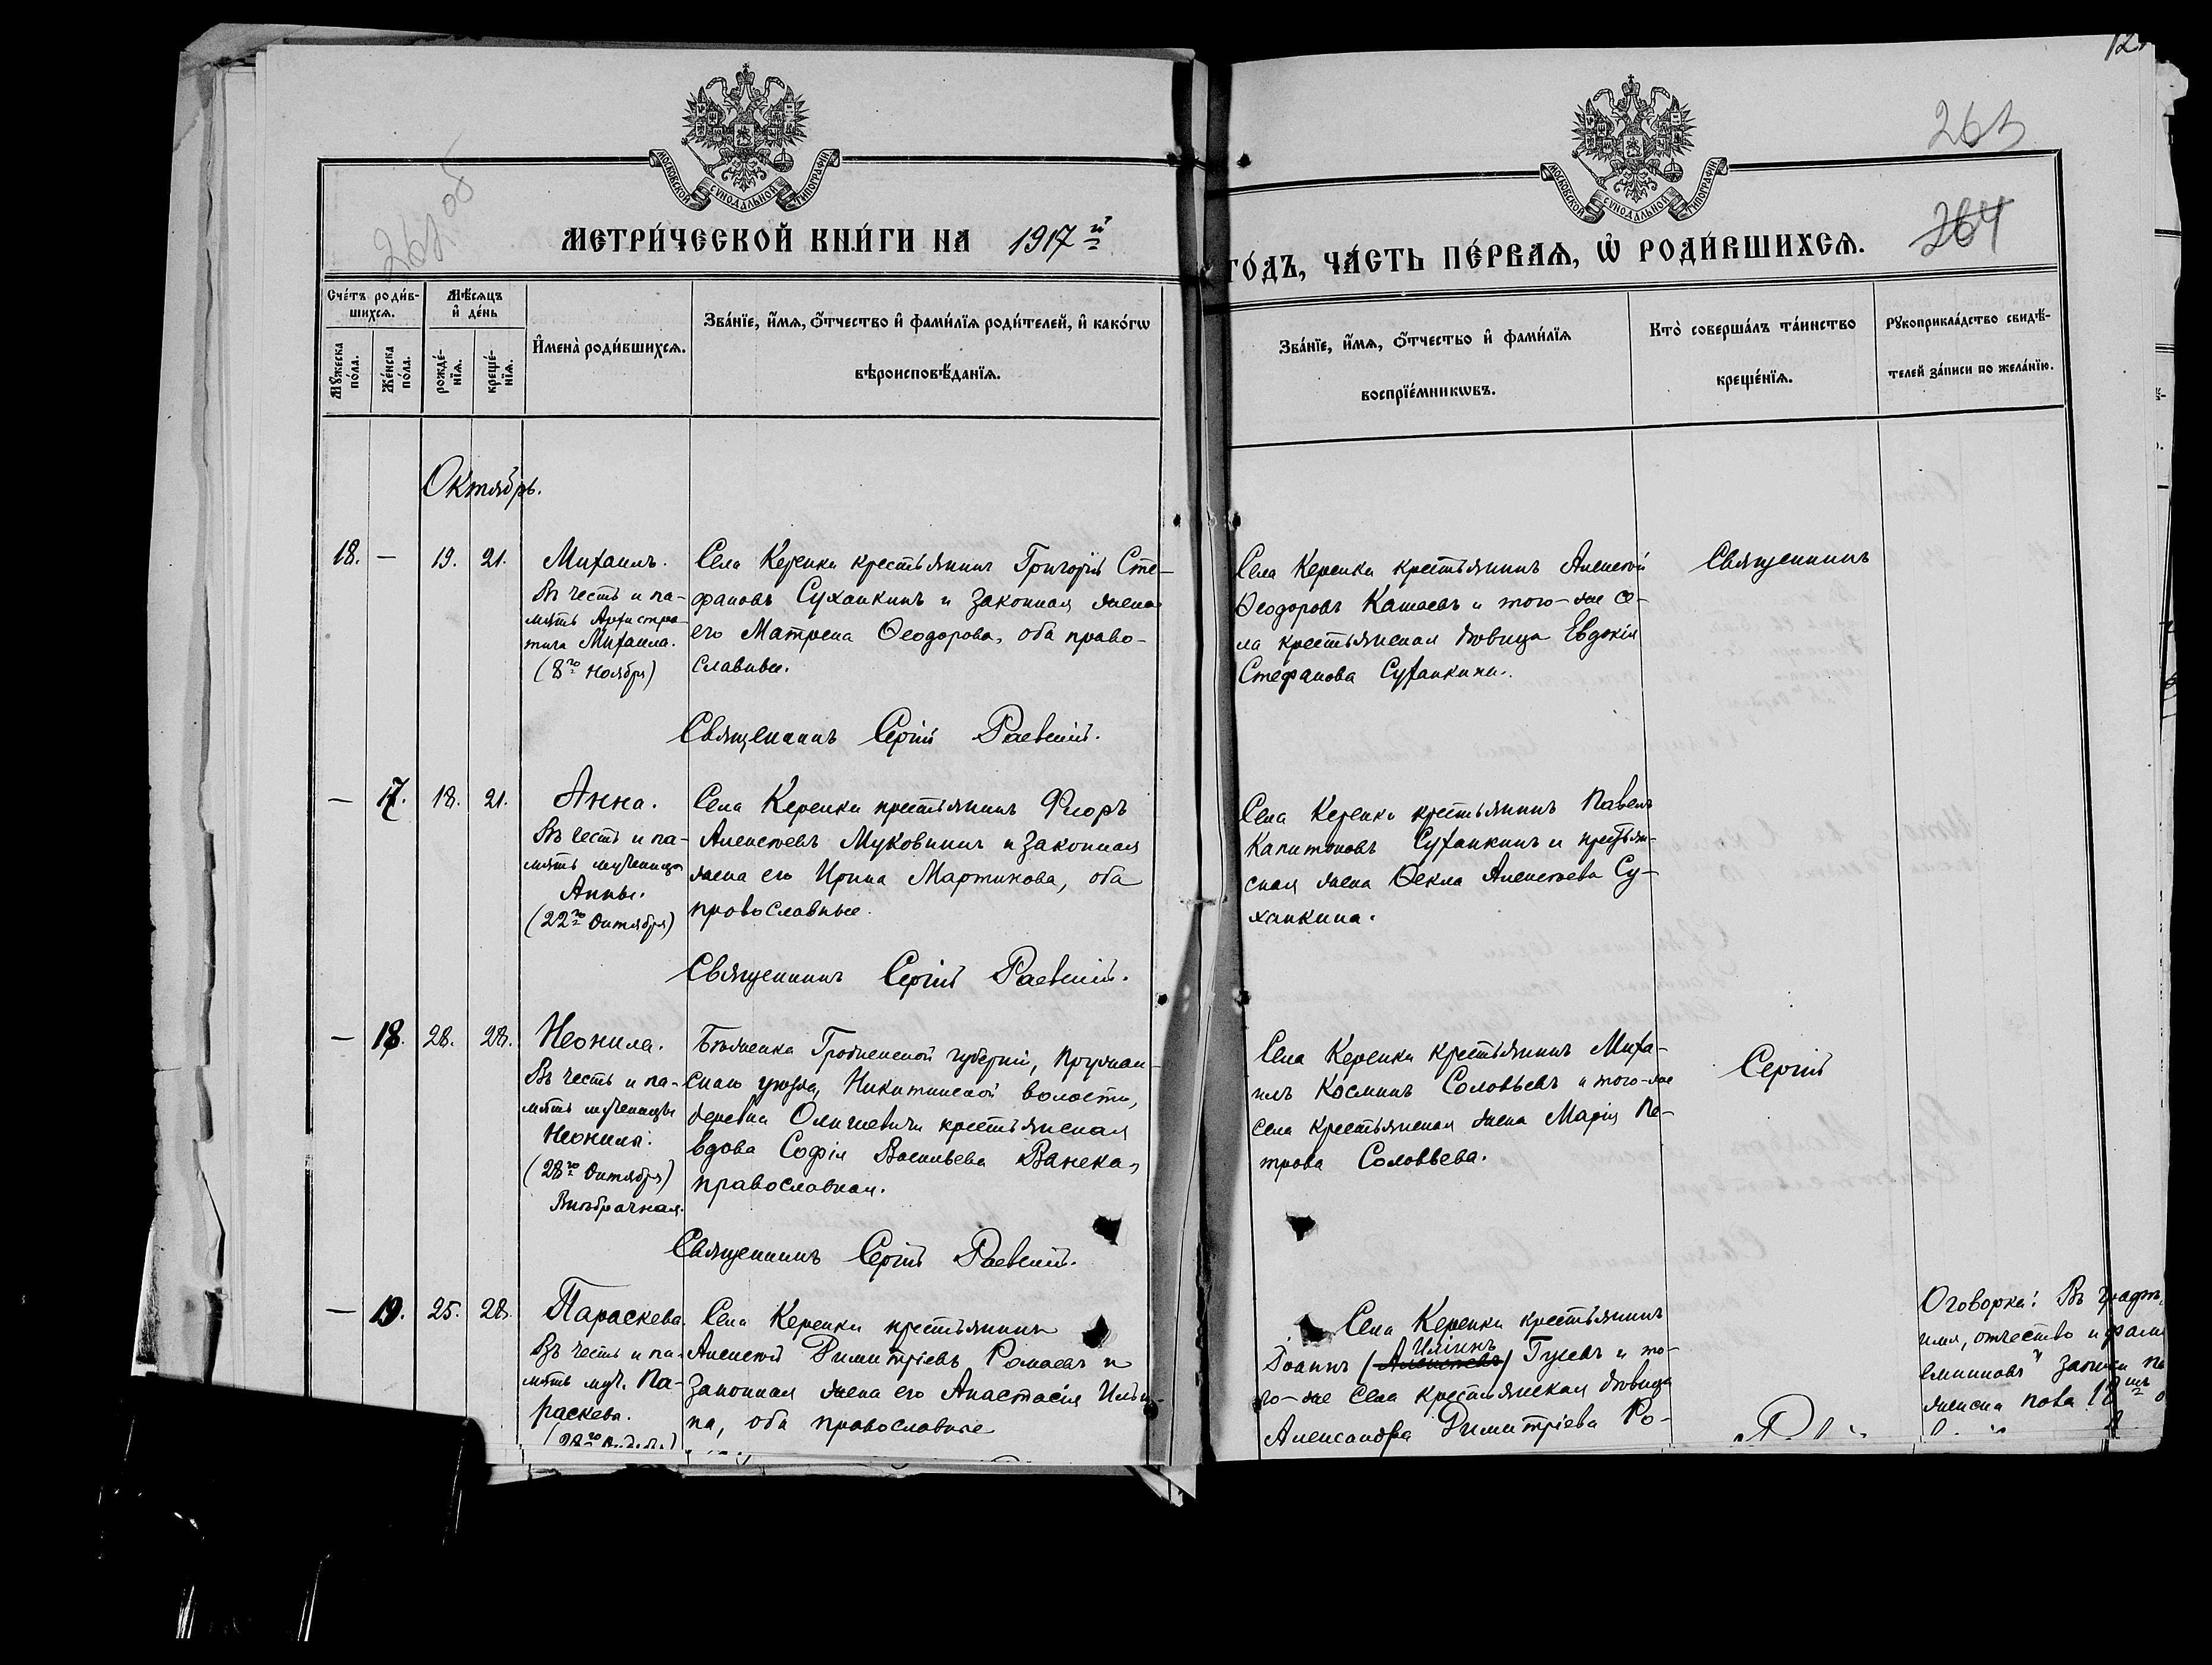 12
263
264
262 об
МОСКОВСКОЙ СУНОДАЛЬНОЙ ТИПОГРАФІИ
МОСКОВСКОЙ СУНОДАЛЬНОЙ ТИПОГРАФІИ
МЕТРИ́ЧЕСКОЙ КНИ́ГИ НА 1917й
ГО́ДЪ, ЧА́СТЬ ПЕ́РВАѦ, Ѡ҆ РОДИ́ВШИХСѦ.
Сче́тъ роди́в-
шихсѧ.
Мѣ́сѧцъ
и҆ де́нь
Мꙋ́жеска
по́ла.
Же́нска
по́ла.
рожде́-
нїѧ.
креще́-
нїѧ.
И҆мена̀ роди́вшихсѧ.
Зва́нїе, и҆́мѧ, ѻ҆́тчество и҆ фами́лїѧ роди́телей, и҆ како́гѡ
вѣроисповѣ́данїѧ.
Зва́нїе, и҆́мѧ, ѻ҆́тчество и҆ фами́лїѧ
воспрїе́мникѡвъ.
Кто̀ соверша́лъ та́инство
креще́нїѧ.
Рꙋкоприкла́дство свидѣ́-
телей за́писи по жела́нїю.
Октябрь.
18. — 19. 21.
Михаилъ.
Въ честь и па-
мять Архистра-
тига Михаила.
(8го Ноября)
Села Керенки крестьянинъ Григорій Сте-
фановъ Суханкинъ и законная жена
его Матрена Ѳеодорова, оба право-
славные.
Села Керенки крестьянинъ Алексѣй
Ѳеодоровъ Кашаевъ и того-же се-
ла крестьянская дѣвица Евдокія
Стефанова Суханкина.
Священникъ
Священникъ Сергій Раевскій.
— 17. 18. 21.
Анна.
Въ честь и па-
мять мученицы
Анны.
(22го Октября)
Села Керенки крестьянинъ Флоръ
Алексѣевъ Муковнинъ и законная
жена его Ирина Мартинова, оба
православные.
Села Керенки крестьянинъ Павелъ
Капитоновъ Суханкинъ и крестьян-
ская жена Ѳекла Алексѣева Су-
ханкина.
Священникъ Сергій Раевскій.
— 18. 28. 28.
Неонила.
Въ честь и па-
мять мученицы
Неонилы.
(28го Октября)
Внѣбрачная.
Бѣженка Гродненской губерніи, Пружан-
скаго уѣзда, Никитинской волости,
деревни Олишевичи крестьянская
вдова Софія Васильева Ванека,
православная.
Села Керенки крестьянинъ Миха-
илъ Косминъ Соловьевъ и того-же
села крестьянская жена Марія Пе-
трова Соловьева.
Сергій
Священникъ Сергій Раевскій.
— 19. 25. 28.
Параскева.
Въ честь и па-
мять муч. Па-
раскевы.
Села Керенки крестьянинъ
Алексѣй Димитріевъ Ромаевъ и
законная жена его Анастасія Ильи-
на, оба православные
Села Керенки крестьянинъ
Іоаннъ (Алексѣевъ) Иліинъ Гусевъ и то-
го-же села крестьянская дѣвица
Александра Димитріева Ро-
Оговорка: Въ графѣ,
имя, отчество и фами
емниковъ" записи
женска пола